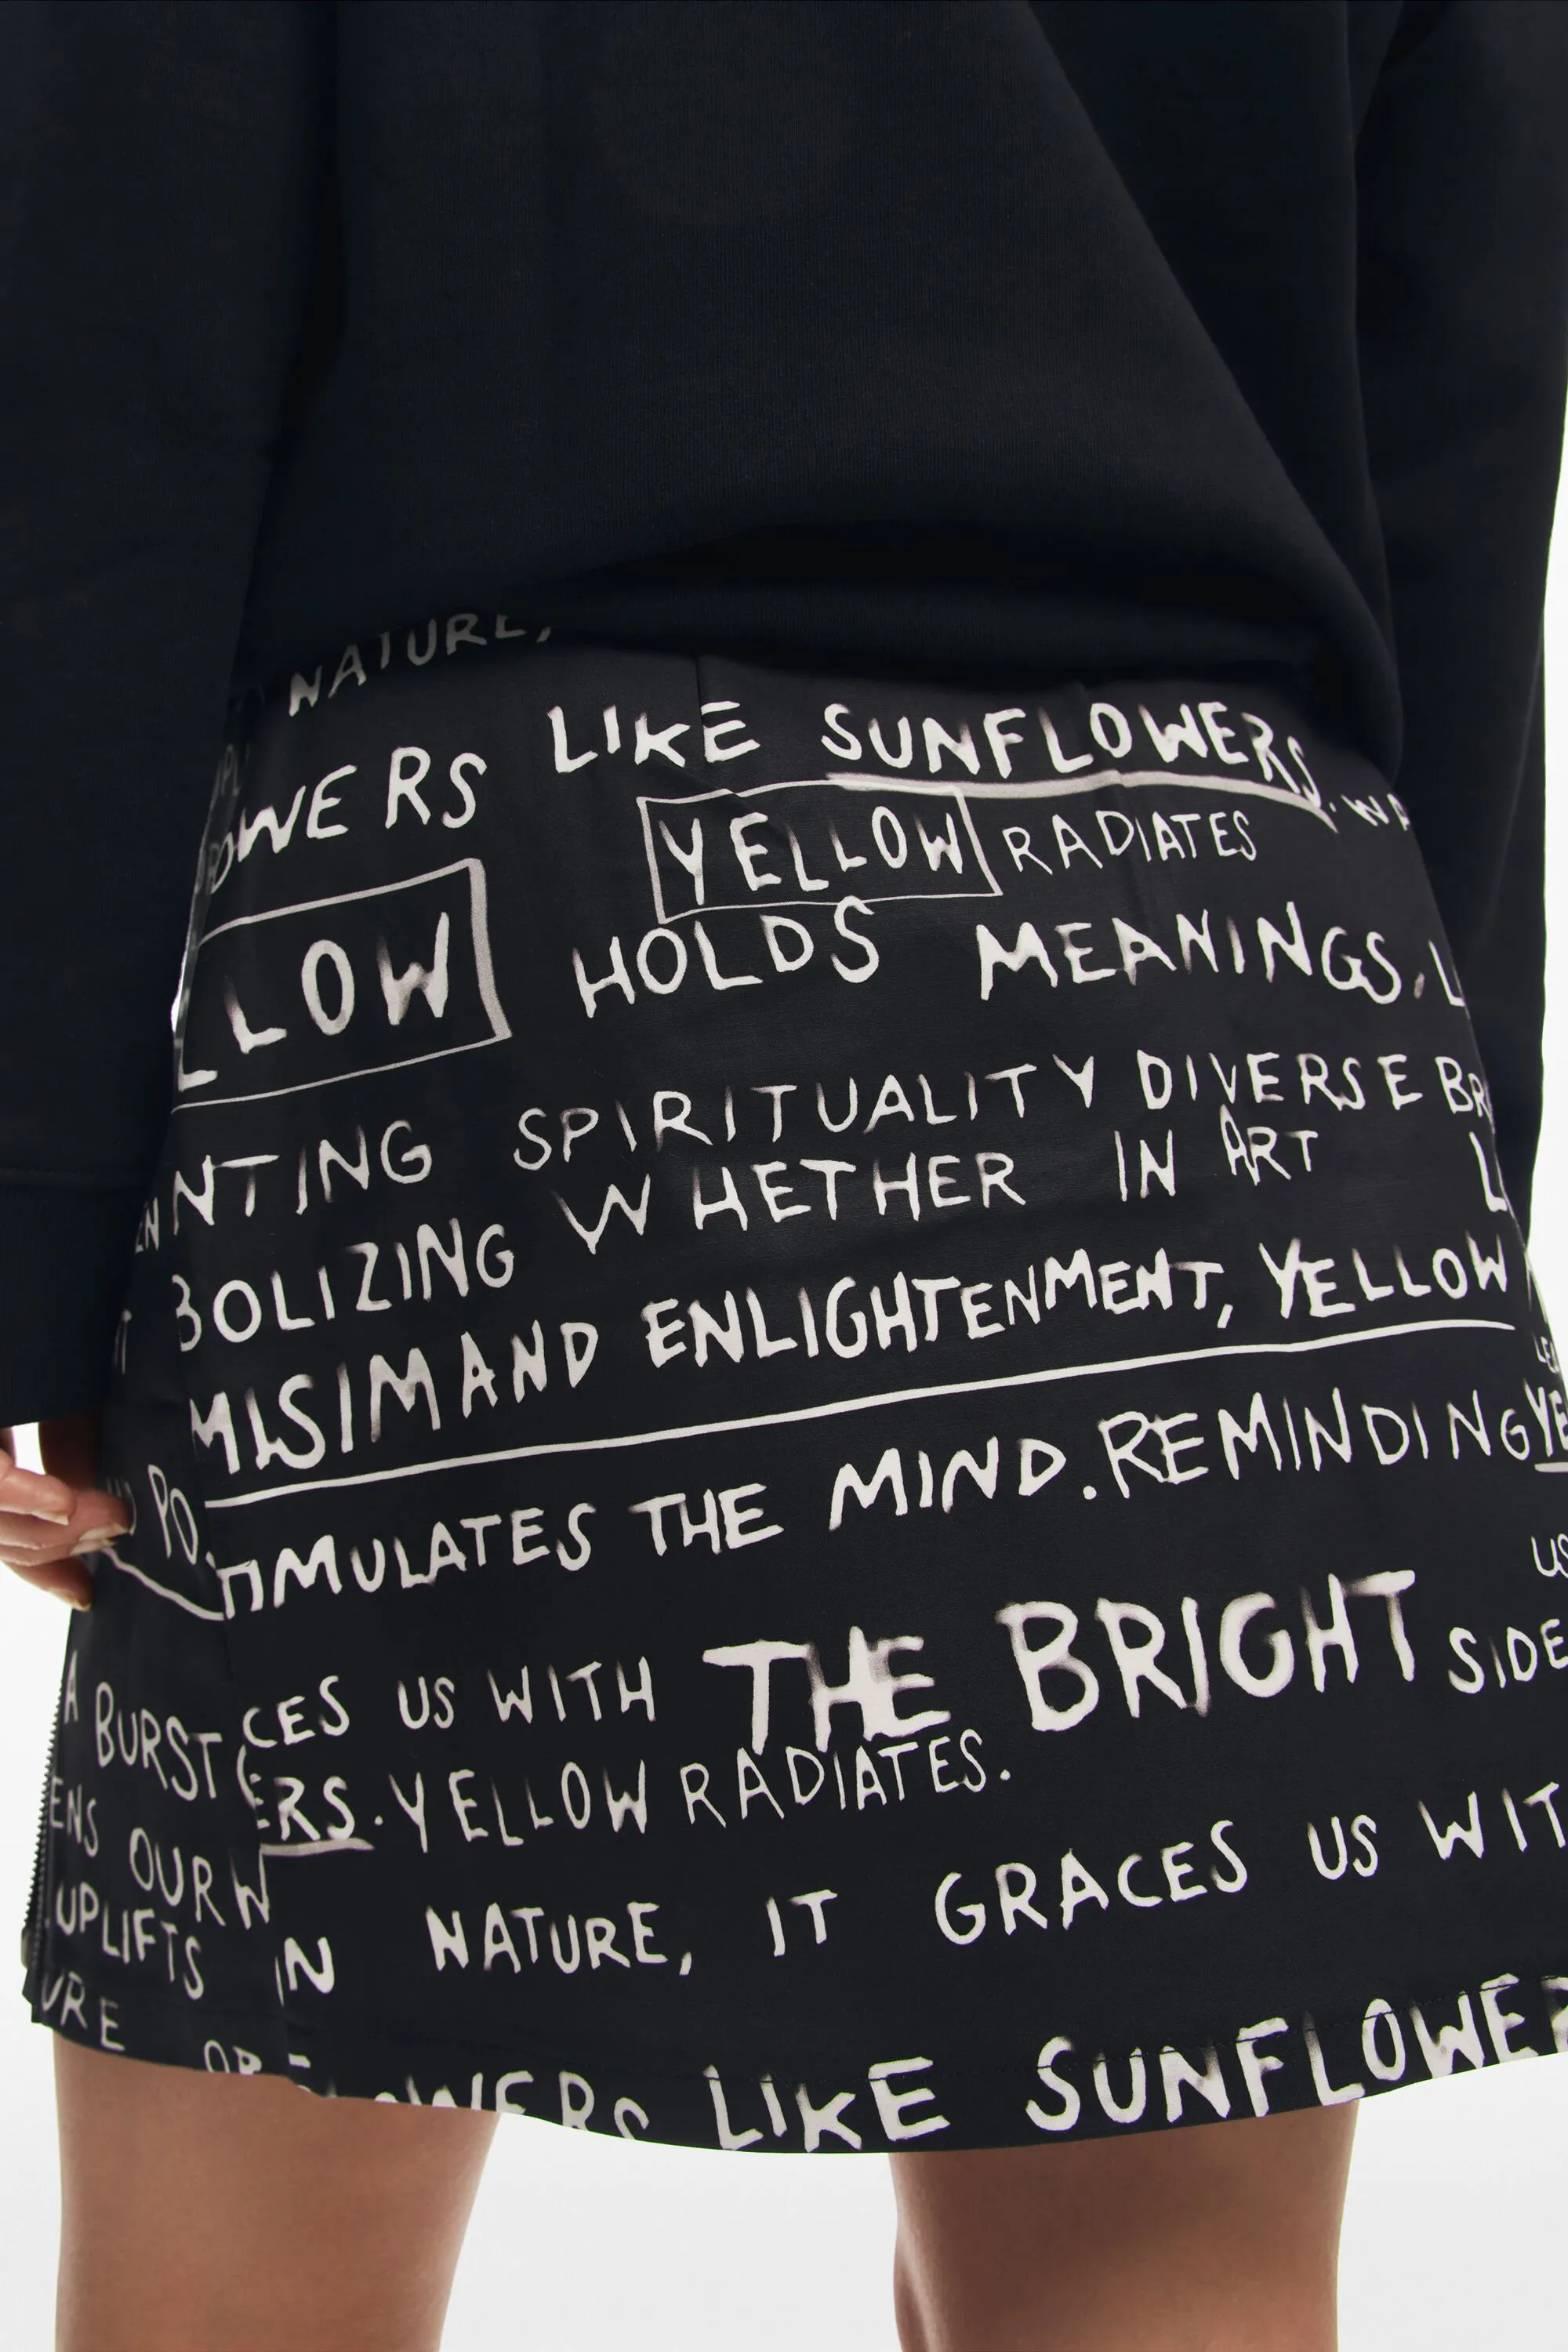 NATURE,
LIKE SUNFLOWERS.
OWERS
YELLOW RADIATES
LLOW
HOLDS MEANINGS, L
NTING SPIRITUALITY DIVERSE BR
BOLIZING WHETHER IN ART
MISIMAND ENLIGHTENMENT, YELLOW
PO
TIMULATES THE MIND. REMINDING YE
US
CES US WITH THE BRIGHT SIDE
A BURST
ERS. YELLOW RADIATES.
ENS OUR W
UPLIFTS
IN NATURE, IT GRACES US WIT
URE
OWERS LIKE SUNFLOWER